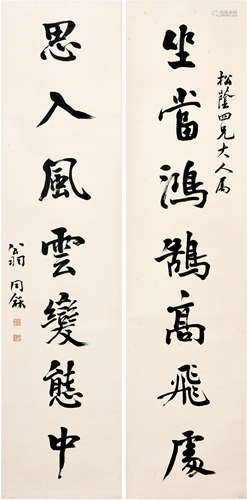 松陰四兄大人屬
坐當鴻鵠高飛處
思入風雲變態中
翁同龢